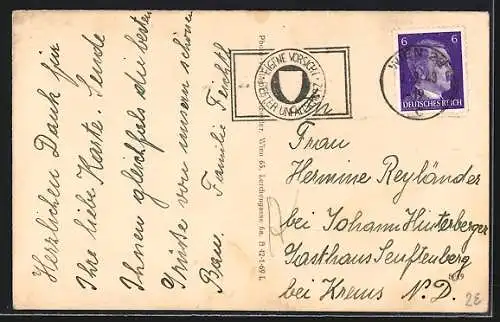 Herzlichen Dank für
Ihre liebe Karte. Sende
Ihnen gleichfals die besten
Grüsse von unsern schönen
Bau. Familie Feichtl
EIGENE VORSICHT
BESTER UNFALLSCHUTZ
Wien 65, Lerchengasse 6a, B 12-1-69 L
6 6
DEUTSCHES REICH
An
Frau
Hermine Reyländer
bei Johann Hinterberger
Gasthaus Senftenberg
bei Krems N.D.
2E